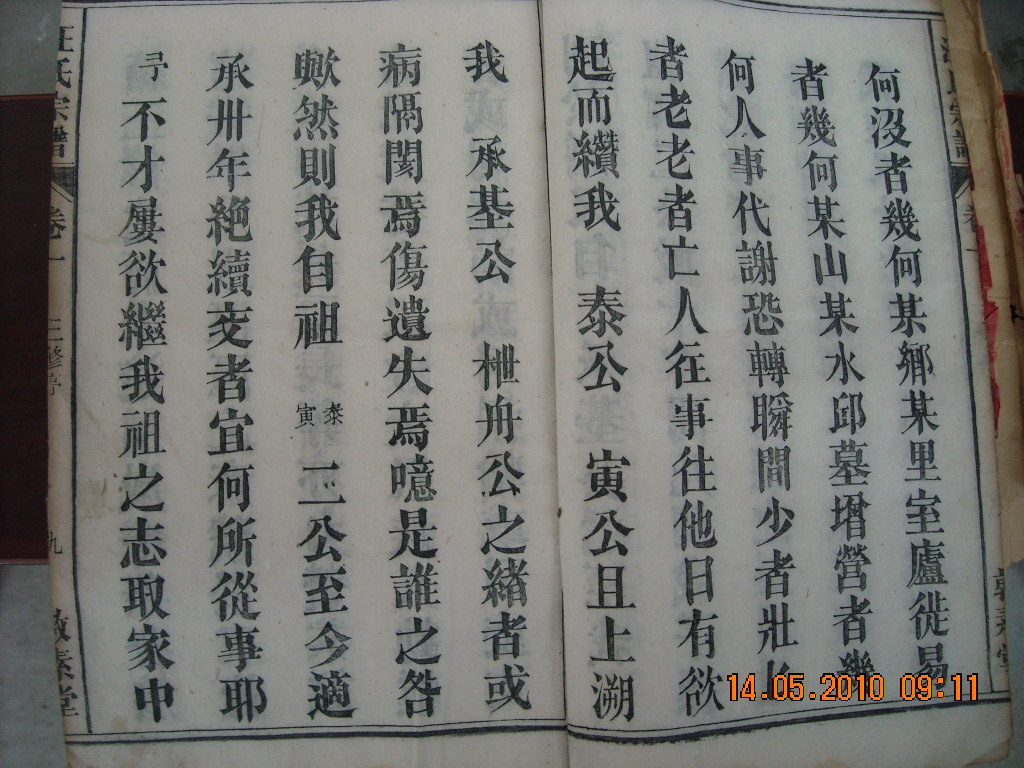 何沒者幾何某鄉某里室廬徙易
者幾何某山某水邱墓增營者幾
何人事代謝恐轉瞬間少者壯
者老老者亡人往事往他日有欲
起而纘我 泰公 寅公且上溯
我 承基公 枻舟公之緒者或
病隔閡焉傷遺失焉噫是誰之咎
歟然則我自祖 泰寅 二公至今適
承卅年絶續交者宜何所從事耶
不才屢欲繼我祖之志取家中
汪氏宗譜 卷一 三修序 九 敦素堂
14.05.2010 09:11